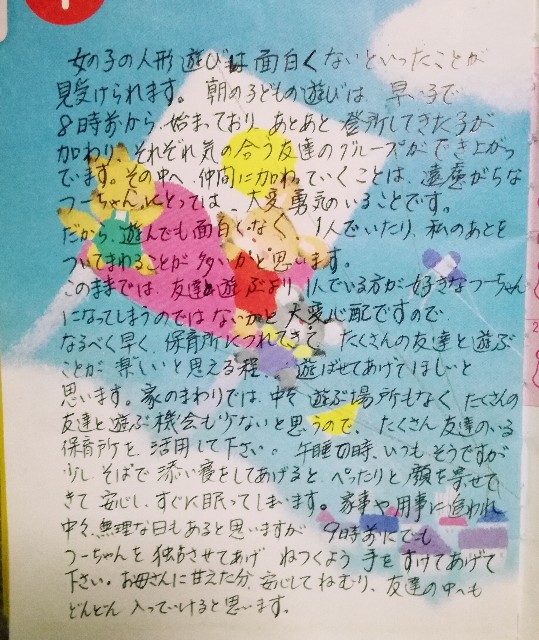 女の子の人形遊びは面白くないといったことが
見受けられます。朝の子どもの遊びは、早い子で
8時前から、始まっており、あとあと登所してきた子が
加わり、それぞれ気の合う友達のグループができ上がっ
ています。その中へ仲間に加わっていくことは、遠慮がちな
つーちゃんにとっては、大変勇気のいることです。
だから、遊んでも面白くなく、1人でいたり、私のあとを
ついてまわることが多いかと思います。
このままでは、友達と遊ぶより1人でいる方が好きなつーちゃん
になってしまうのではないかと大変心配ですので、
なるべく早く、保育所につれてきて、たくさんの友達と遊ぶ
ことが楽しいと思える程、遊ばせてあげてほしいと
思います。家のまわりでは、中々遊ぶ場所もなく、たくさんの
友達と遊ぶ機会も少ないと思うので、たくさん友達のいる
保育所を、活用して下さい。午睡の時、いつもそうですが
少しそばで添い寝をしてあげると、ぺったりと顔を寄せて
きて安心し、すぐに眠ってしまいます。家事や用事に追われ
中々無理な日もあると思いますが、9時前にでも
つーちゃんを独占させてあげ、ねつくよう手をすけてあげて
下さい。お母さんに甘えた分、安心してねむり、友達の中へも
どんどん入っていけると思います。